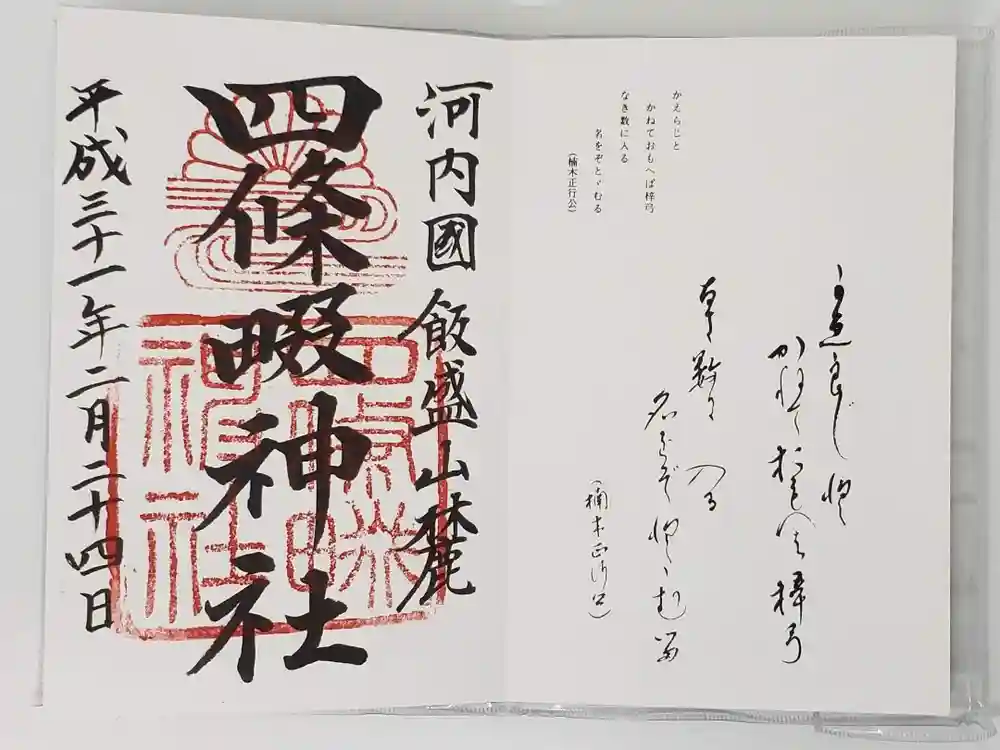 かえらじと
かねておもへば梓弓
なき数に入る
名をぞとゞむる
(楠木正行公)
良じ 登
かねておもへば梓弓
数に 入る
名をぞ登ゞむ留
(楠木正行公)
河内國飯盛山麓
四條畷神社
平成三十一年二月二十四日